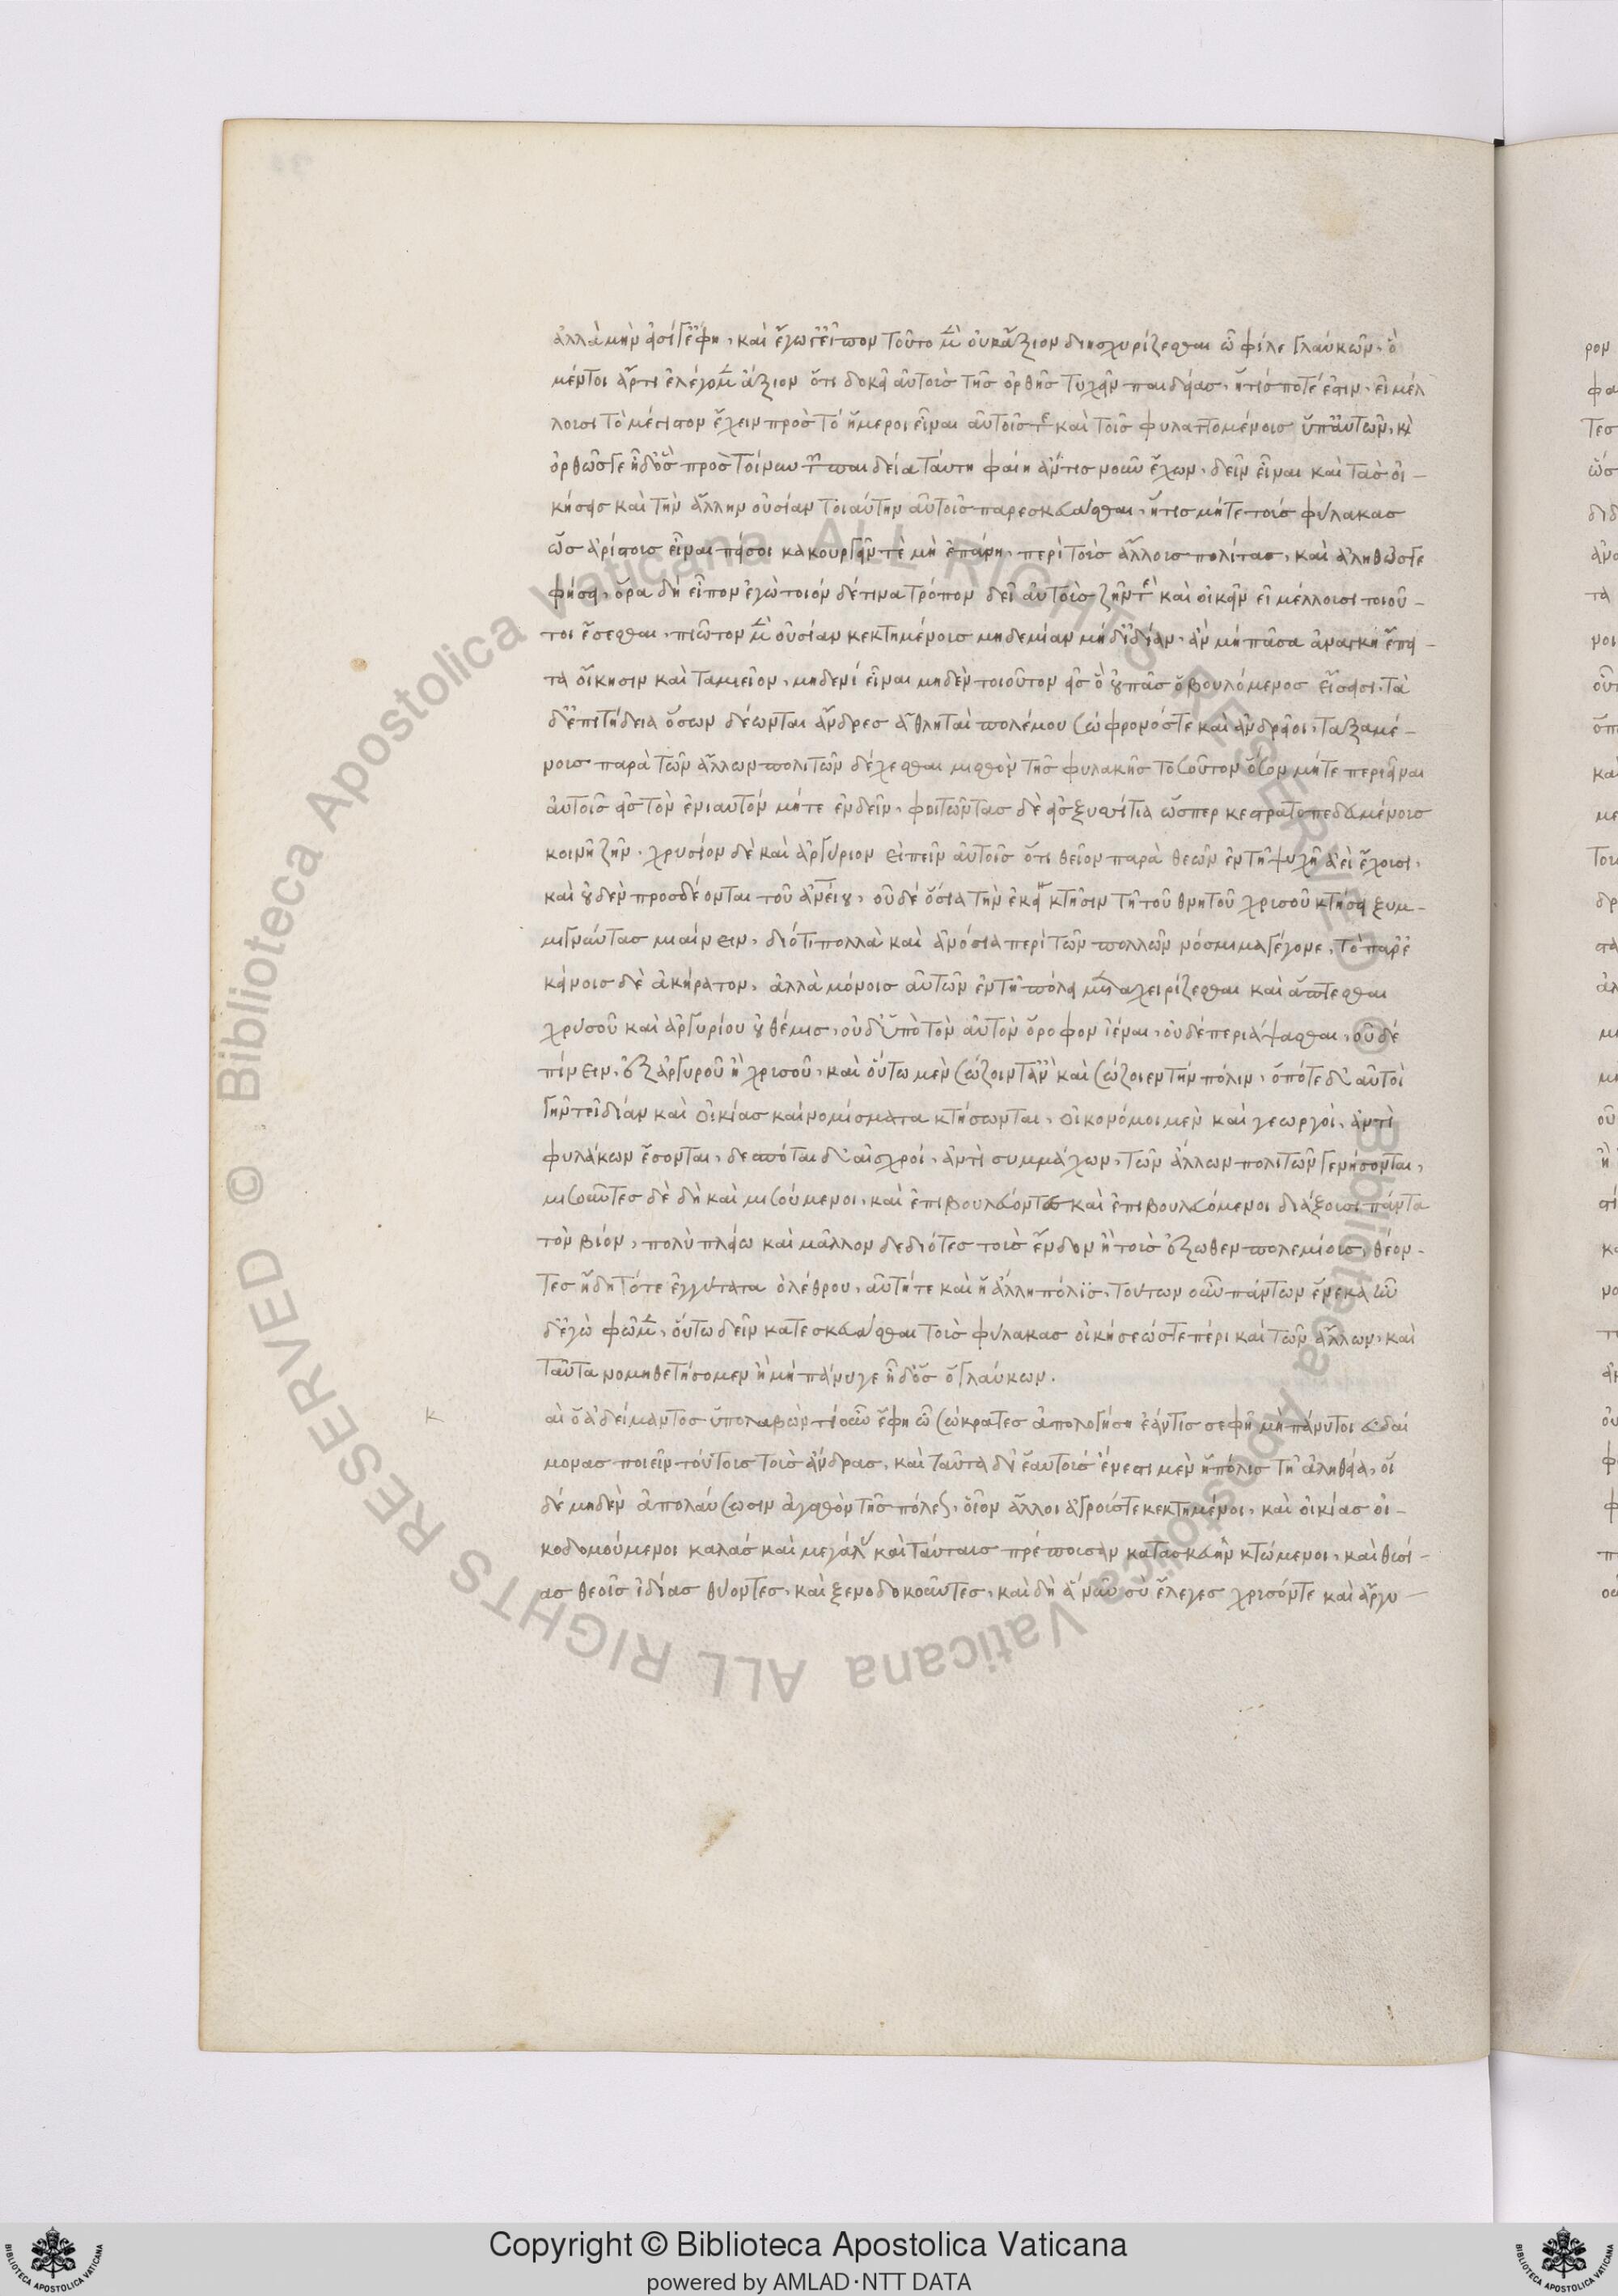 ἀλλὰ μὴν εἰσί γ' ἔφη, καὶ ἔγωγ' εἶπον τοῦτο μὲν οὐκ ἄξιον διισχυρίζεσθαι ὦ φίλε Γλαύκων, ὃ
μέντοι ἄρτι ἐλέγομεν ἄξιον ὅτι δοκεῖ αὐτοὺς τῆς ὀρθῆς τυχεῖν παιδείας, ἥτις ποτέ ἐστιν, εἰ μέλ
λουσι τὸ μέγιστον ἔχειν πρὸς τὸ ἥμεροι εἶναι αὐτοῖς τε καὶ τοῖς φυλαττομένοις ὑπ' αὐτῶν, καὶ
ὀρθῶς γε ἦ δ' ὅς πρὸς τοίνυν τῇ παιδεία ταύτη φαίη ἄν τις νοῦν ἔχων, δεῖν εἶναι καὶ τὰς οἰ-
κήσεις καὶ τὴν ἄλλην οὐσίαν τοιαύτην αὐτοῖς παρεσκευάσθαι, ἥτις μήτε τοὺς φύλακας
ὡς ἀρίστους εἶναι παύσοι κακουργεῖν τὲ μὴ ἐπάρη, περὶ τοὺς ἄλλους πολίτας, καὶ ἀληθῶς γε
φήσει, ὅρα δὴ εἶπον ἐγὼ τοιόνδέ τινα τρόπον δεῖ αὐτοὺς ζῆν τὲ καὶ οἰκεῖν εἰ μέλλουσι τοιοῦ-
τοι ἔσεσθαι, πρῶτον μὲν οὐσίαν κεκτημένους μηδεμίαν μηδ' ἰδίαν, ἂν μὴ πᾶσα ἀνάγκη ἔπει-
τα οἴκησιν καὶ ταμιεῖον, μηδενί εἶναι μηδὲν τοιοῦτον εἰς ὃ οὐ πᾶς ὁ βουλόμενος εἴσεισι, τὰ
δ' ἐπιτήδεια ὅσων δέωνται ἄνδρες ἀθληταὶ πολέμου σώφρονές τε καὶ ἀνδρεῖοι, ταξαμέ-
νους παρὰ τῶν ἄλλων πολιτῶν δέχεσθαι μισθὸν τῆς φυλακῆς τοσοῦτον ὅσον μήτε περιεῖναι
αὐτοῖς εἰς τὸν ἐνιαυτόν μήτε ἐνδεῖν, φοιτῶντας δὲ εἰς ξυσσίτια ὥσπερ κεστρατοπεδευμένους
κοινῆ ζῆν. χρυσίον δὲ καὶ ἀργύριον εἰπεῖν αὐτοῖς ὅτι θεῖον παρὰ θεῶν ἐν τῆ ψυχῆ ἀεὶ ἔχουσι,
καὶ οὐδὲν προσδέονται τοῦ ἀνείου, οὐδέ ὅσια τὴν ἐκείνου κτῆσιν τῆ τοῦ θνητοῦ χρυσοῦ κτήσει ξυμ-
μιγνύντας μιαίνειν, διότι πολλὰ καὶ ἀνόσια περὶ τῶν πολλῶν νόσμιμα γέγονε, τὸ παρ' ἐ
κείνοις δὲ ἀκήρατον, ἀλλὰ μόνοις αὐτῶν ἐν τῆ πόλει μεταχειρίζεσθαι καὶ ἅπτεσθαι
χρυσοῦ καὶ ἀργυρίου οὐ θέμις, οὐδ' ὑπὸ τὸν αὐτὸν ὄροφον ἰέναι, οὐδὲ περιάψασθαι, οὐδέ
πίνειν, ἐξ ἀργυροῦ ἢ χρυσοῦ, καὶ οὕτω μὲν σώζοιντ' ἂν καὶ σώζοιεν τὴν πόλιν, ὁπότε δ' αὐτοὶ
γῆν τ' ἰδίαν καὶ οἰκίας καὶ νομίσματα κτήσωνται, οἰκονόμοι μὲν καὶ γεωργοὶ, ἀντὶ
φυλάκων ἔσονται, δεσπόται δ' αἰσχροί, ἀντὶ συμμάχων, τῶν ἄλλων πολιτῶν γενήσονται,
μισοῦντες δὲ δὴ καὶ μισούμενοι, καὶ ἐπιβουλεύοντες καὶ ἐπιβουλευόμενοι διάξουσι πάντα
τὸν βίον, πολὺ πλείω καὶ μᾶλλον δεδιότες τοὺς ἔνδον ἢ τοὺς ἔξωθεν πολεμίους, θέον-
τες ἤδη τότε ἐγγύτατα ὀλέθρου, αὐτή τε καὶ ἡ ἄλλη πόλις, τούτων οὖν πάντων ἕνεκα ὢν
δ' ἐγὼ φῶμεν, οὕτω δεῖν κατεσκευάσθαι τοὺς φύλακας οἰκήσεώς τε πέρι καὶ τῶν ἄλλων, καὶ
ταῦτα νομηθετήσομεν ἢ μὴ πάνυ γε ἦ δ' ὃς ὁ Γλαύκων.
κ αὶ ὁ ἀδείμαντος ὑπολαβὼν τί οὖν ἔφη ὦ σώκρατες ἀπολογήση ἐάν τις σε φῆ μὴ πάνυ τοι εὐδαί
μονας ποιεῖν τούτους τοὺς ἄνδρας, καὶ ταῦτα δι' ἑαυτοὺς ἔνεστι μὲν ἡ πόλις τῆ ἀληθεία, οἳ
δὲ μηδὲν ἀπολαύσωσιν ἀγαθὸν τῆς πόλεως, οἷον ἄλλοι ἀγρούς τε κεκτημένοι, καὶ οἰκίας οἰ-
κοδομούμενοι καλάς καὶ μεγάλας καὶ ταύταις πρέπουσαν κατασκευὴν κτώμενοι, καὶ θυσί-
ας θεοῖς ἰδίας θύοντες, καὶ ξενοδοκοῦντες, καὶ δὴ ἃ νῦν σὺ ἔλεγες χρυσόν τε καὶ ἄργυ-
Copyright © Biblioteca Apostolica Vaticana
powered by AMLAD·NTT DATA